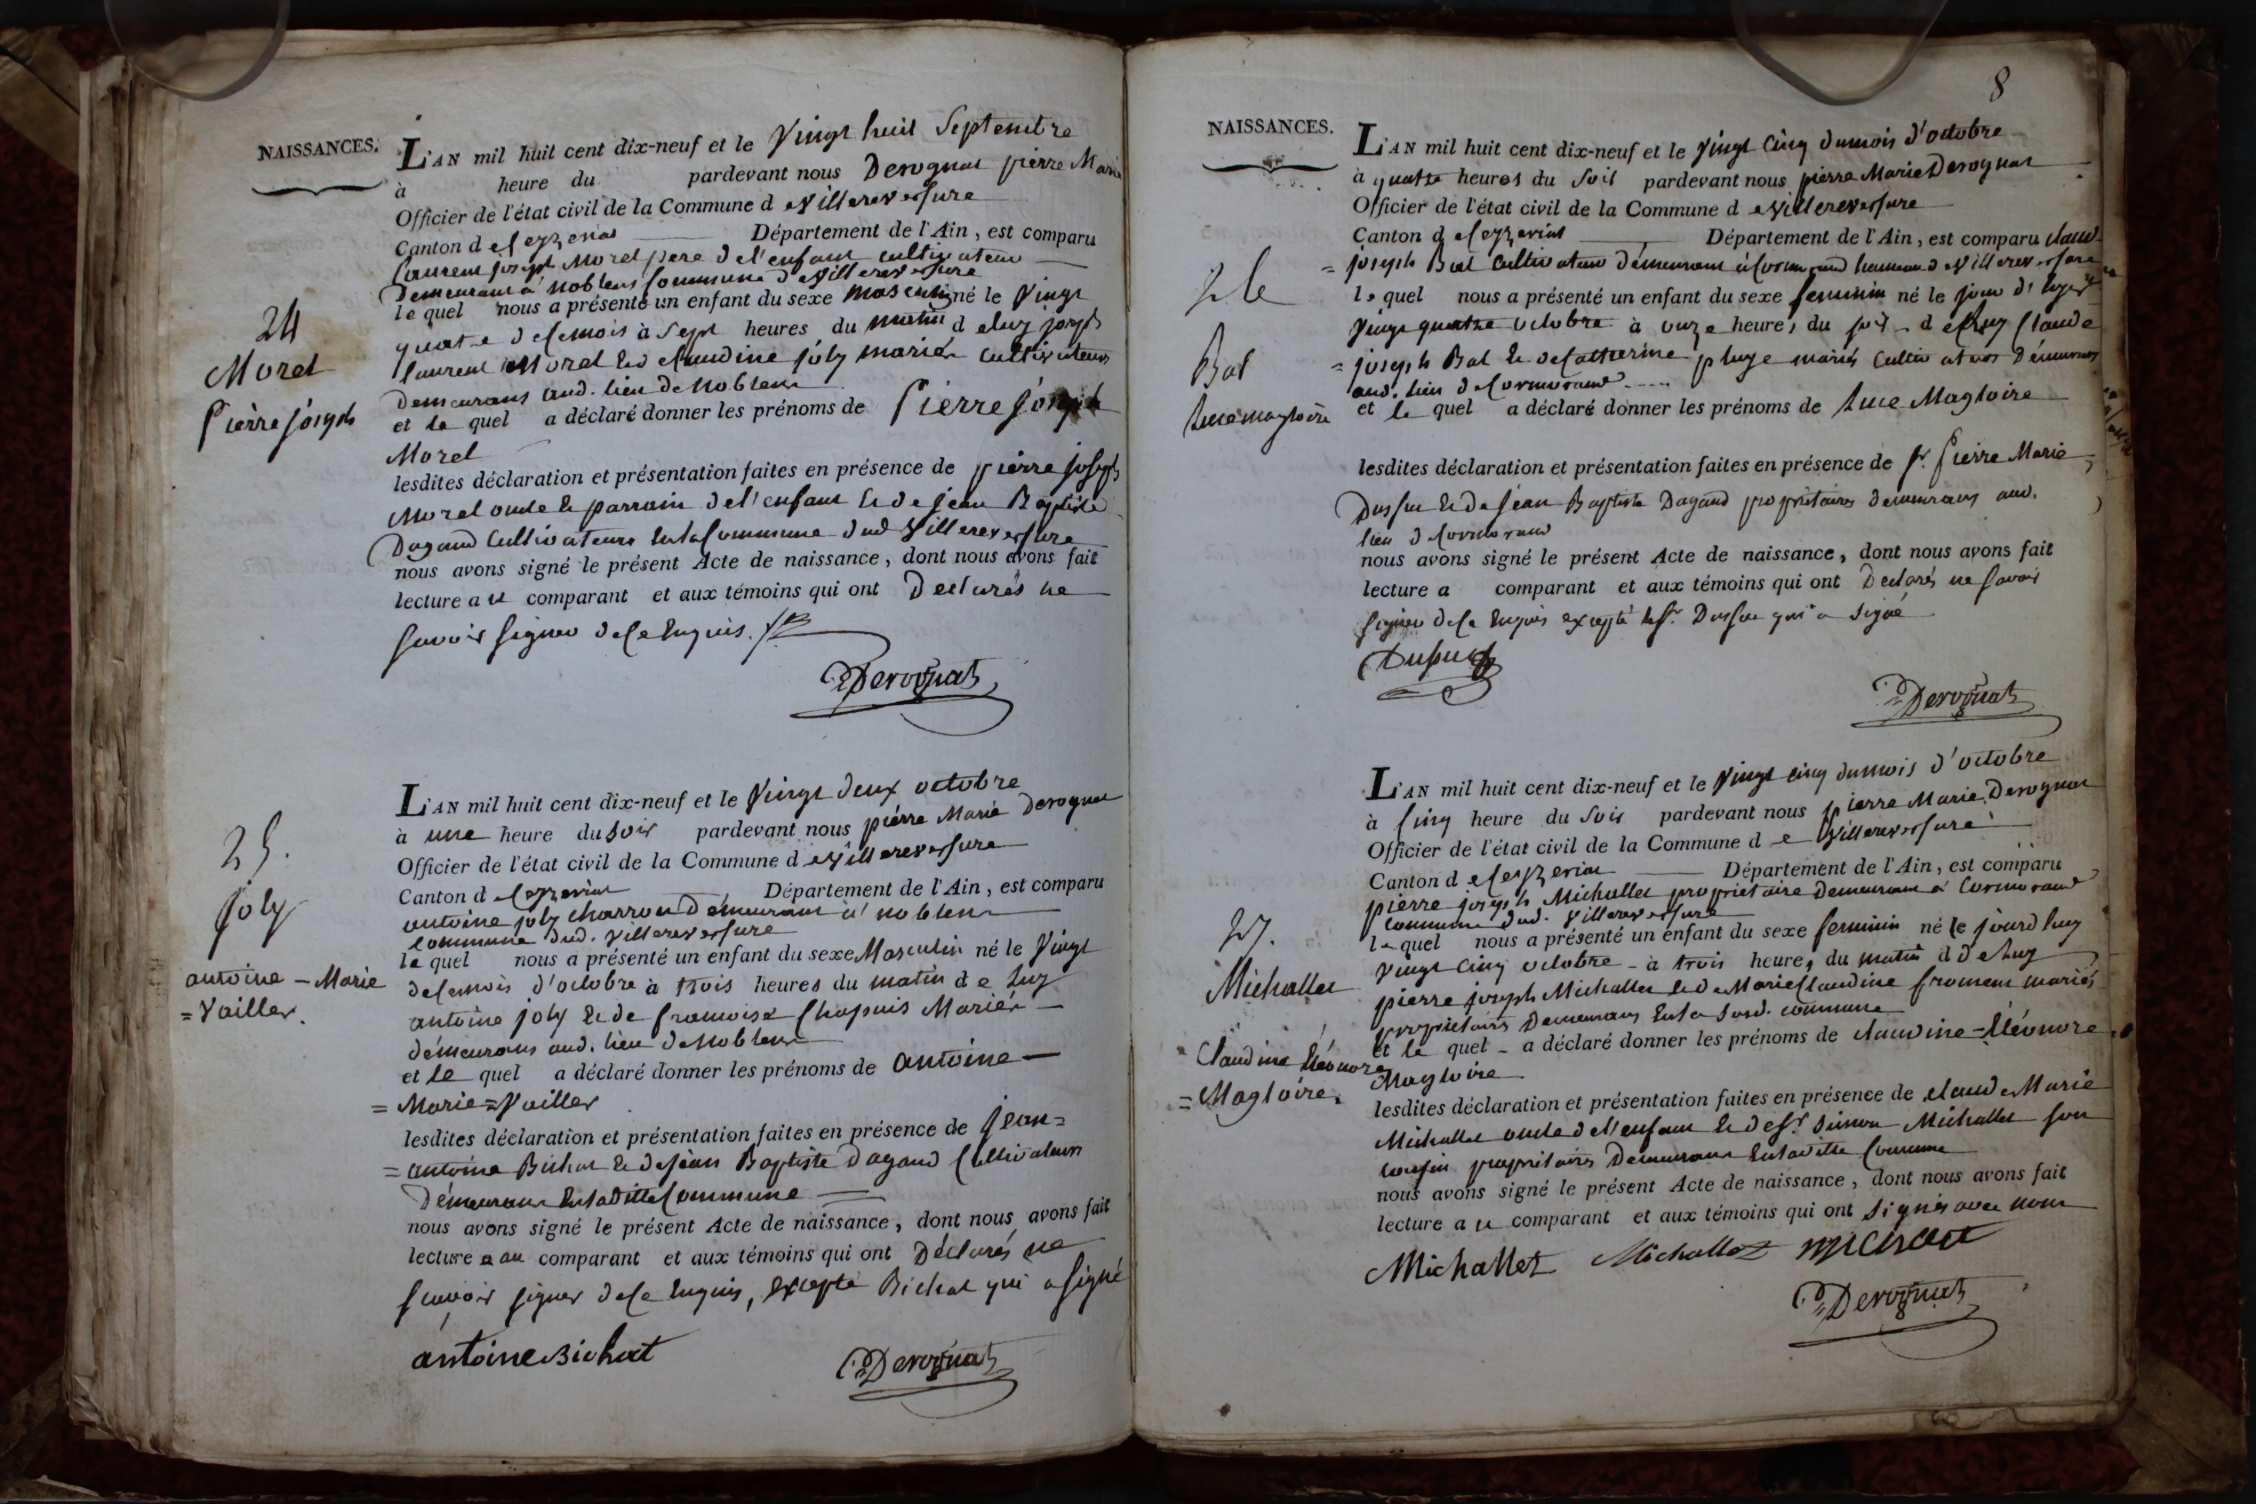 NAISSANCES.
L'AN mil huit cent dix-neuf et le Vingt huit Septembre
à heure du pardevant nous Derognat pierre Marie
Officier de l'état civil de la Commune d eVillereversure
Canton d eCeyzeriat Département de l'Ain, est comparu
Laurent joseph Morel pere de l'enfant cultivateur
Demeurant à Noblens Commune deVillereversure
le quel nous a présenté un enfant du sexe masculin né le Vingt
quatre de Ce mois à Sept heures du matin d eluy joseph
laurent Morel et de Claudine joly mariés Cultivateurs
Demeurans aud. lieu de Noblens
et le quel a déclaré donner les prénoms de Pierre Joseph
Morel
lesdites déclaration et présentation faites en présence de pierre joseph
Morel oncle et parrain de l'enfant et de jean Baptiste
Dagand Cultivateurs En la Commune dud Villereversure
nous avons signé le présent Acte de naissance, dont nous avons fait
lecture a u comparant et aux témoins qui ont Déclarés ne
savoir signer de Ce Enquis.
Derognat
24
Morel
Pierre joseph
L'AN mil huit cent dix-neuf et le Vingt deux octobre
à une heure du soir pardevant nous pierre Marie Derognat
Officier de l'état civil de la Commune d eVillereversure
Canton d eCeyzeriat Département de l'Ain, est comparu
antoine joly charron Demeurant à noblens
Commune dud. Villereversure
le quel nous a présenté un enfant du sexe Masculin né le Vingt
de Ce mois d'octobre à trois heures du matin d e luy
antoine joly et de francoise Chapuis Mariés
démeurans aud. lieu de Noblens
et le quel a déclaré donner les prénoms de antoine
= Marie = Vailler
lesdites déclaration et présentation faites en présence de jean =
= antoine Bichat et de jean Baptiste dagand Cultivateurs
Démeurans En la ditte Commune
nous avons signé le présent Acte de naissance, dont nous avons fait
lecture a au comparant et aux témoins qui ont Déclarés ne
scavoir signer de Ce Enquis, Excepté Bichat qui a signé
antoine Bichat Derognat
25.
joly
antoine - Marie
= Vailler.
8
NAISSANCES.
L'AN mil huit cent dix-neuf et le Vingt Cinq du mois d'octobre
à quatre heures du soir pardevant nous pierre Marie Derognat
Officier de l'état civil de la Commune d eVillereversure
Canton d eCeyzeriat Département de l'Ain, est comparu claude
= joseph Bal Cultivateur démeurant à Cormorand hameau de Villereversure
le quel nous a présenté un enfant du sexe feminin né le jour d'hyer
Vingt quatre octobre à onze heures du soir d e luy Claude
= joseph Bal et de Catherine mariés Cultivateurs Démeurans
aud. lieu de Cormorand
et le quel a déclaré donner les prénoms de Luce Magloire
lesdites déclaration et présentation faites en présence de Sr. Pierre Marie
et de jean Baptiste Dagand propriétaires demeurans aud.
lieu de Cormorand
nous avons signé le présent Acte de naissance, dont nous avons fait
lecture a comparant et aux témoins qui ont Déclarés ne savoir
signer de Ce Enquis excepté le Sr. qui a signé
Derognat
26
Bal
Luce magloire
L'AN mil huit cent dix-neuf et le Vingt cinq du mois d'octobre
à Cinq heure du soir pardevant nous pierre Marie Derognat
Officier de l'état civil de la Commune d e Villereversure
Canton d eCeyzeriat Département de l'Ain, est comparu
pierre joseph Michallet propriétaire Demeurant à Cormorand
Commune dud. Villereversure
le quel nous a présenté un enfant du sexe feminin né le jourd huy
Vingt Cinq octobre - à trois heures du matin d de luy
pierre joseph Michallet et de Marie Claudine froment mariés
propriétaires Demeurans En la susd. commune
et le quel - a déclaré donner les prénoms de claudine = Eléonore
Magloire
lesdites déclaration et présentation faites en présence de claude Marie
Michallet oncle de l'enfant et de Sr. Simon Michallet son
cousin propriétaires Demeurans En la ditte Commune
nous avons signé le présent Acte de naissance, dont nous avons fait
lecture a u comparant et aux témoins qui ont signés avec nous
Michallet Michallet Michallet
Derognat
27.
Michallet
Claudine Eléonore
= Magloire.